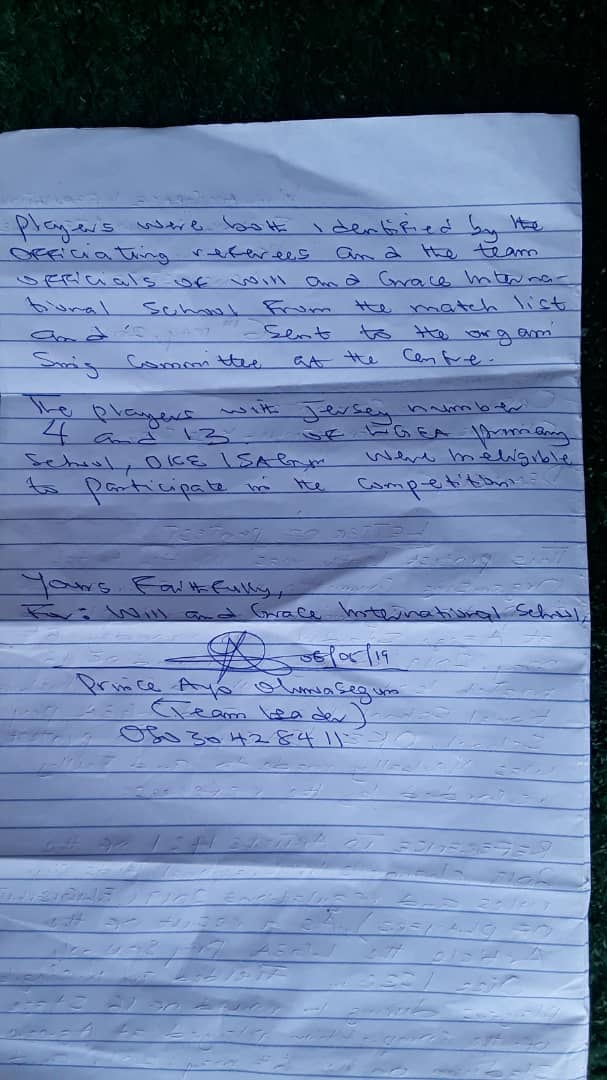 Players were both identified by the
Officiating referees and the team
officials of Will and Grace Interna-
tional School From the match list
and Sent to the organi
Sing Committee at the Centre.
The Players with jersey number
4 and 13 of LGEA primary
School, OKE were ineligible
to Participate in the Competition.
Yours Faithfully,
For: Will and Grace International School,
06/05/19
Prince Ayo Oluwasegun
(Team leader)
08030428411